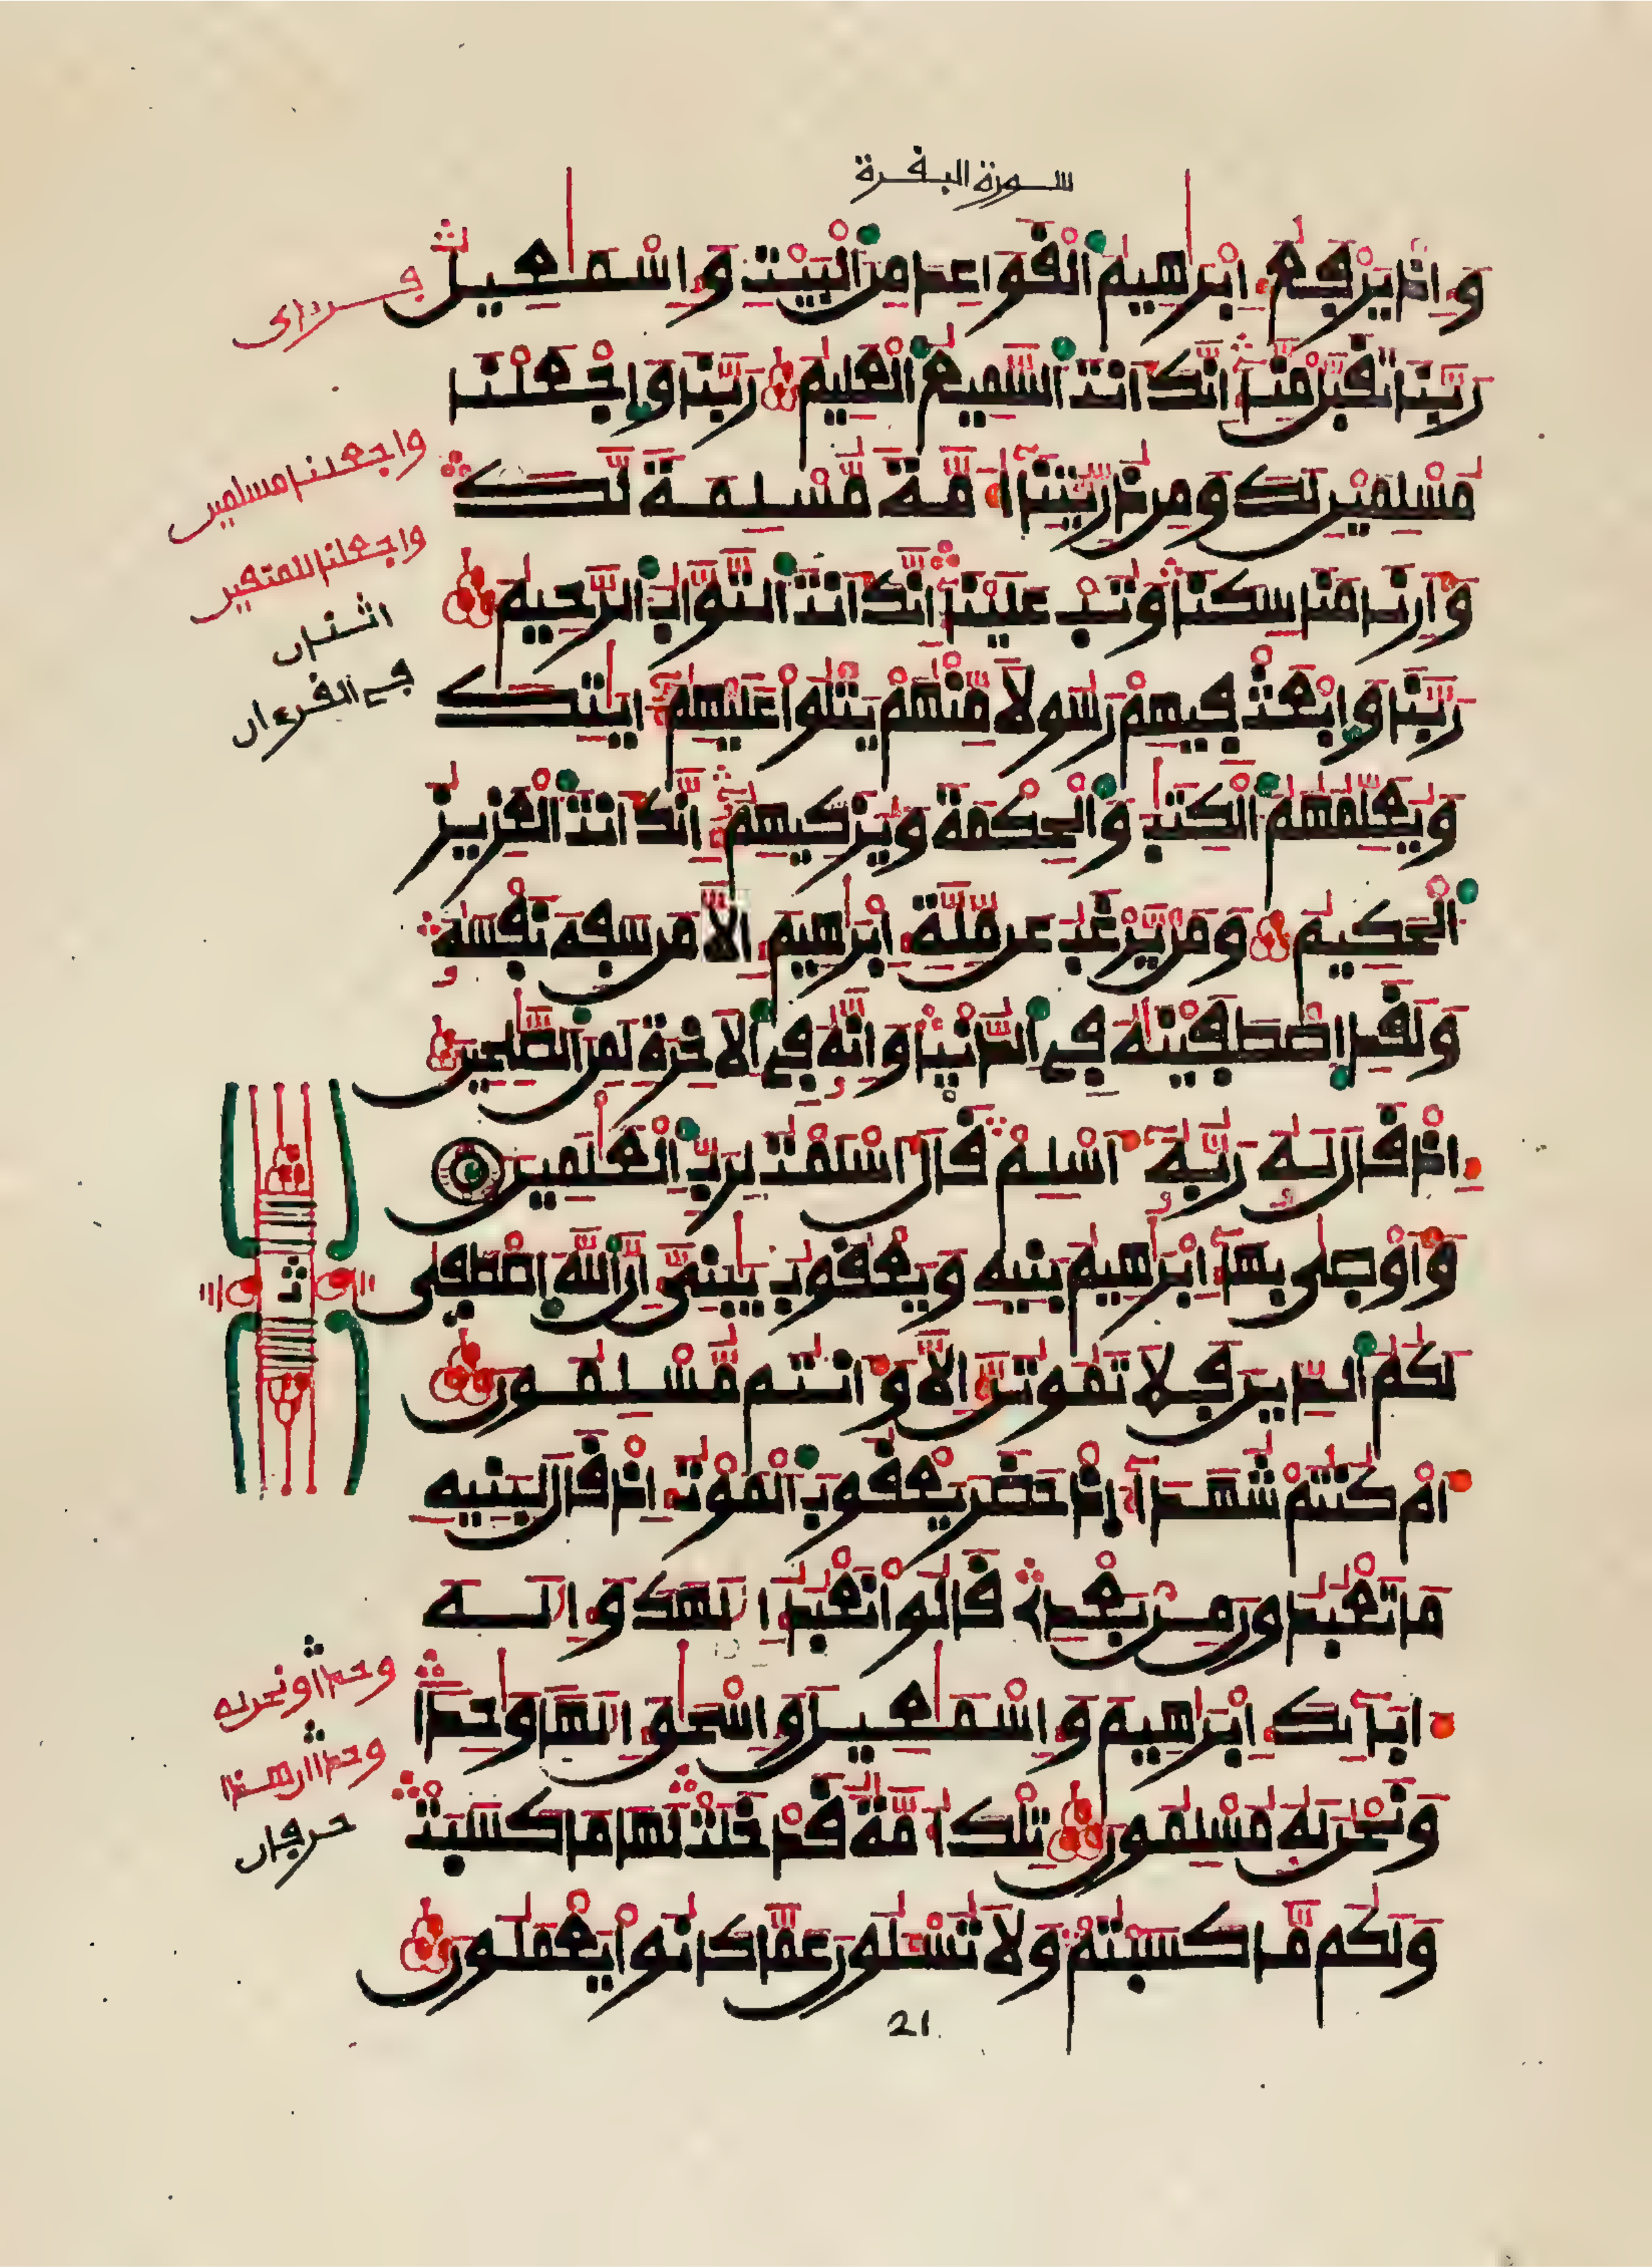 سورة البفرة
وَإِذْ يَرْفَعُ إِبْرَٰهِيمُ اُ۬لْقَوَاعِدَ مِنَ اَ۬لْبَيْتِ وَإِسْمَٰعِيلُ
رَبَّنَا تَقَبَّلْ مِنَّا إِنَّكَ أَنتَ اَ۬لسَّمِيعُ اُ۬لْعَلِيمُ رَبَّنَا وَاجْعَلْنَا
مُسْلِمَيْنِ لَكَ وَمِن ذُرِّيَّتِنَا أُمَّةً مُّسْلِمَةً لَّكَ
وَأَرِنَا مَنَاسِكَنَا وَتُبْ عَلَيْنَا إِنَّكَ أَنتَ اَ۬لتَّوَّابُ اُ۬لرَّحِيمُ
رَبَّنَا وَابْعَثْ فِيهِمْ رَسُولًا مِّنْهُمْ يَتْلُوا عَلَيْهِمُ ءَايَٰتِكَ
وَيُعَلِّمُهُمُ اُ۬لْكِتَٰبَ وَالْحِكْمَةَ وَيُزَكِّيهِمُ إِنَّكَ أَنتَ اَ۬لْعَزِيزُ
اُ۬لْحَكِيمُ وَمَن يَّرْغَبُ عَن مِّلَّةِ إِبْرَٰهِيمَ إِلَّا مَن سَفِهَ نَفْسَهُ
وَلَقَدِ اِ۪صْطَفَيْنَٰهُ فِي اِ۬لدُّنْيَا وَإِنَّهُ فِي اِ۬لْأَخِرَةِ لَمِنَ اَ۬لصَّٰلِحِينَ
إِذْ قَالَ لَهُ رَبُّهُ أَسْلِمْ قَالَ أَسْلَمْتُ لِرَبِّ اِ۬لْعَٰلَمِينَ
وَأَوْصَىٰ بِهَا إِبْرَٰهِيمُ بَنِيهِ وَيَعْقُوبُ يَٰبَنِيَّ إِنَّ اَ۬للَّهَ اَ۪صْطَفَىٰ
لَكُمُ اُ۬لدِّينَ فَلَا تَمُوتُنَّ إِلَّا وَأَنتُم مُّسْلِمُونَ
أَمْ كُنتُمْ شُهَدَآءَ إِذْ حَضَرَ يَعْقُوبَ اَ۬لْمَوْتُ إِذْ قَالَ لِبَنِيهِ
مَا تَعْبُدُونَ مِن بَعْدِي قَالُوا نَعْبُدُ إِلَٰهَكَ وَإِلَٰهَ
ءَابَآئِكَ إِبْرَٰهِيمَ وَإِسْمَٰعِيلَ وَإِسْحَٰقَ إِلَٰهًا وَٰحِدًا
وَنَحْنُ لَهُ مُسْلِمُونَ تِلْكَ أُمَّةٌ قَدْ خَلَتْ لَهَا مَا كَسَبَتْ
وَلَكُم مَّا كَسَبْتُمْ وَلَا تُسْـَٔلُونَ عَمَّا كَانُوا يَعْمَلُونَ
واجعلنا مسلمين
واجعلنا للمتفين
اثنان
في الفرءان
ثمن
وحدا ونحن له
حرفان
21